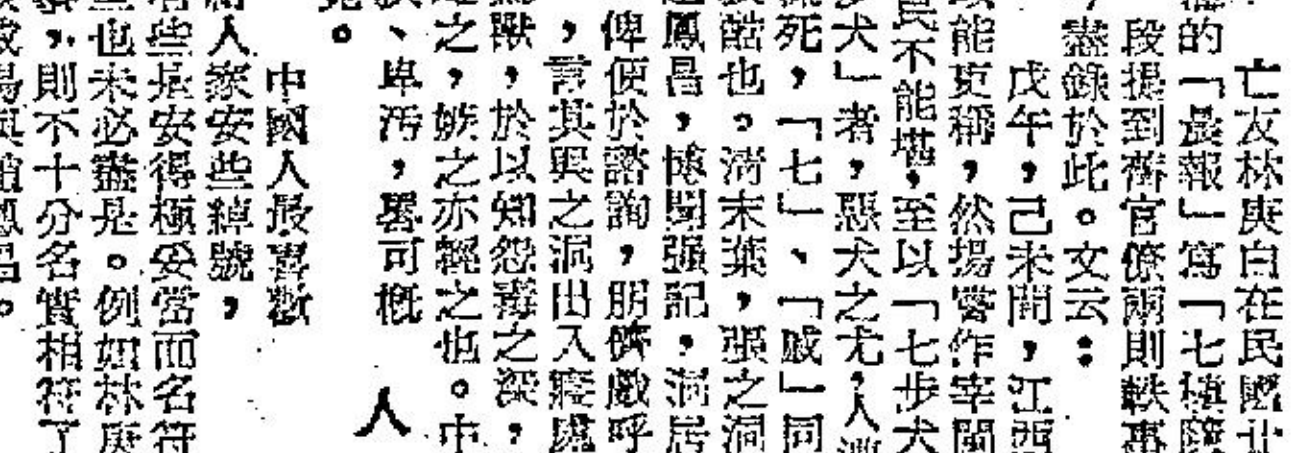 亡友林庚白在民國北
的「晨報」寫「七種
段提到舊官僚兩則軼事
盡錄於此。文云：
戊午，己未間，江西
能更稱，然揚嘗作宰閩
民不能堪，至以「七步犬
步犬」者，惡犬之尤，人
死，「七」、「戚」同
酷也。清末葉，張之洞
鳳昌，博聞强記，洞居
俾便於諮詢，朋儕戲呼
，言其與之洞出入寢處
獸，於以知怨毒之深，
之，嫉之亦輕之也。中
、卑汚，畧可概
。人
中國人最喜歡
人家安些綽號，
有些是安得極妥當而名符
也未必盡是。例如林庚
，則不十分名實相符了
。